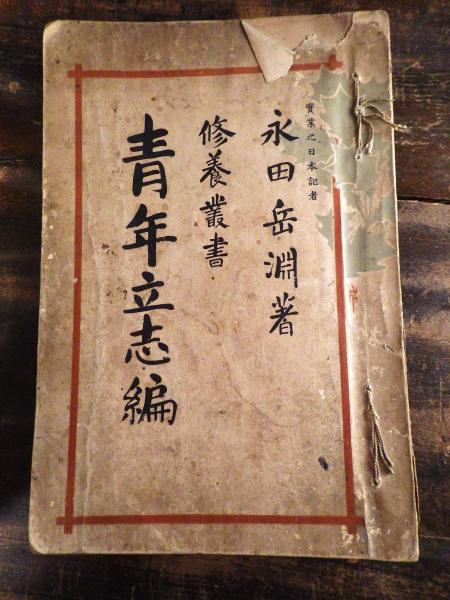 實業之日本記者
永田岳淵著
修養叢書
青年立志編